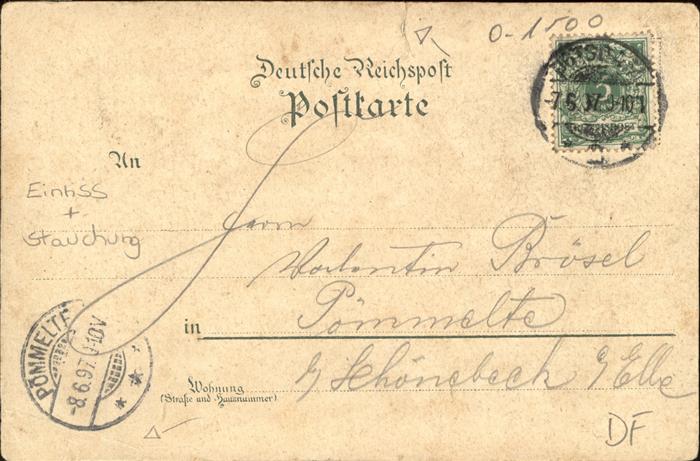 0-1500
Deutsche Reichspost
Postkarte
POTSDAM
7.6.97.9-10V
5
An
Einriss
+
Stauchung
Herrn
Valentin Brösel
in Pömmelte
b/ Schönebeck a/ Elbe
Wohnung
(Straße und Hausnummer)
PÖMMELTE
-8.6.97.9-10V
DF